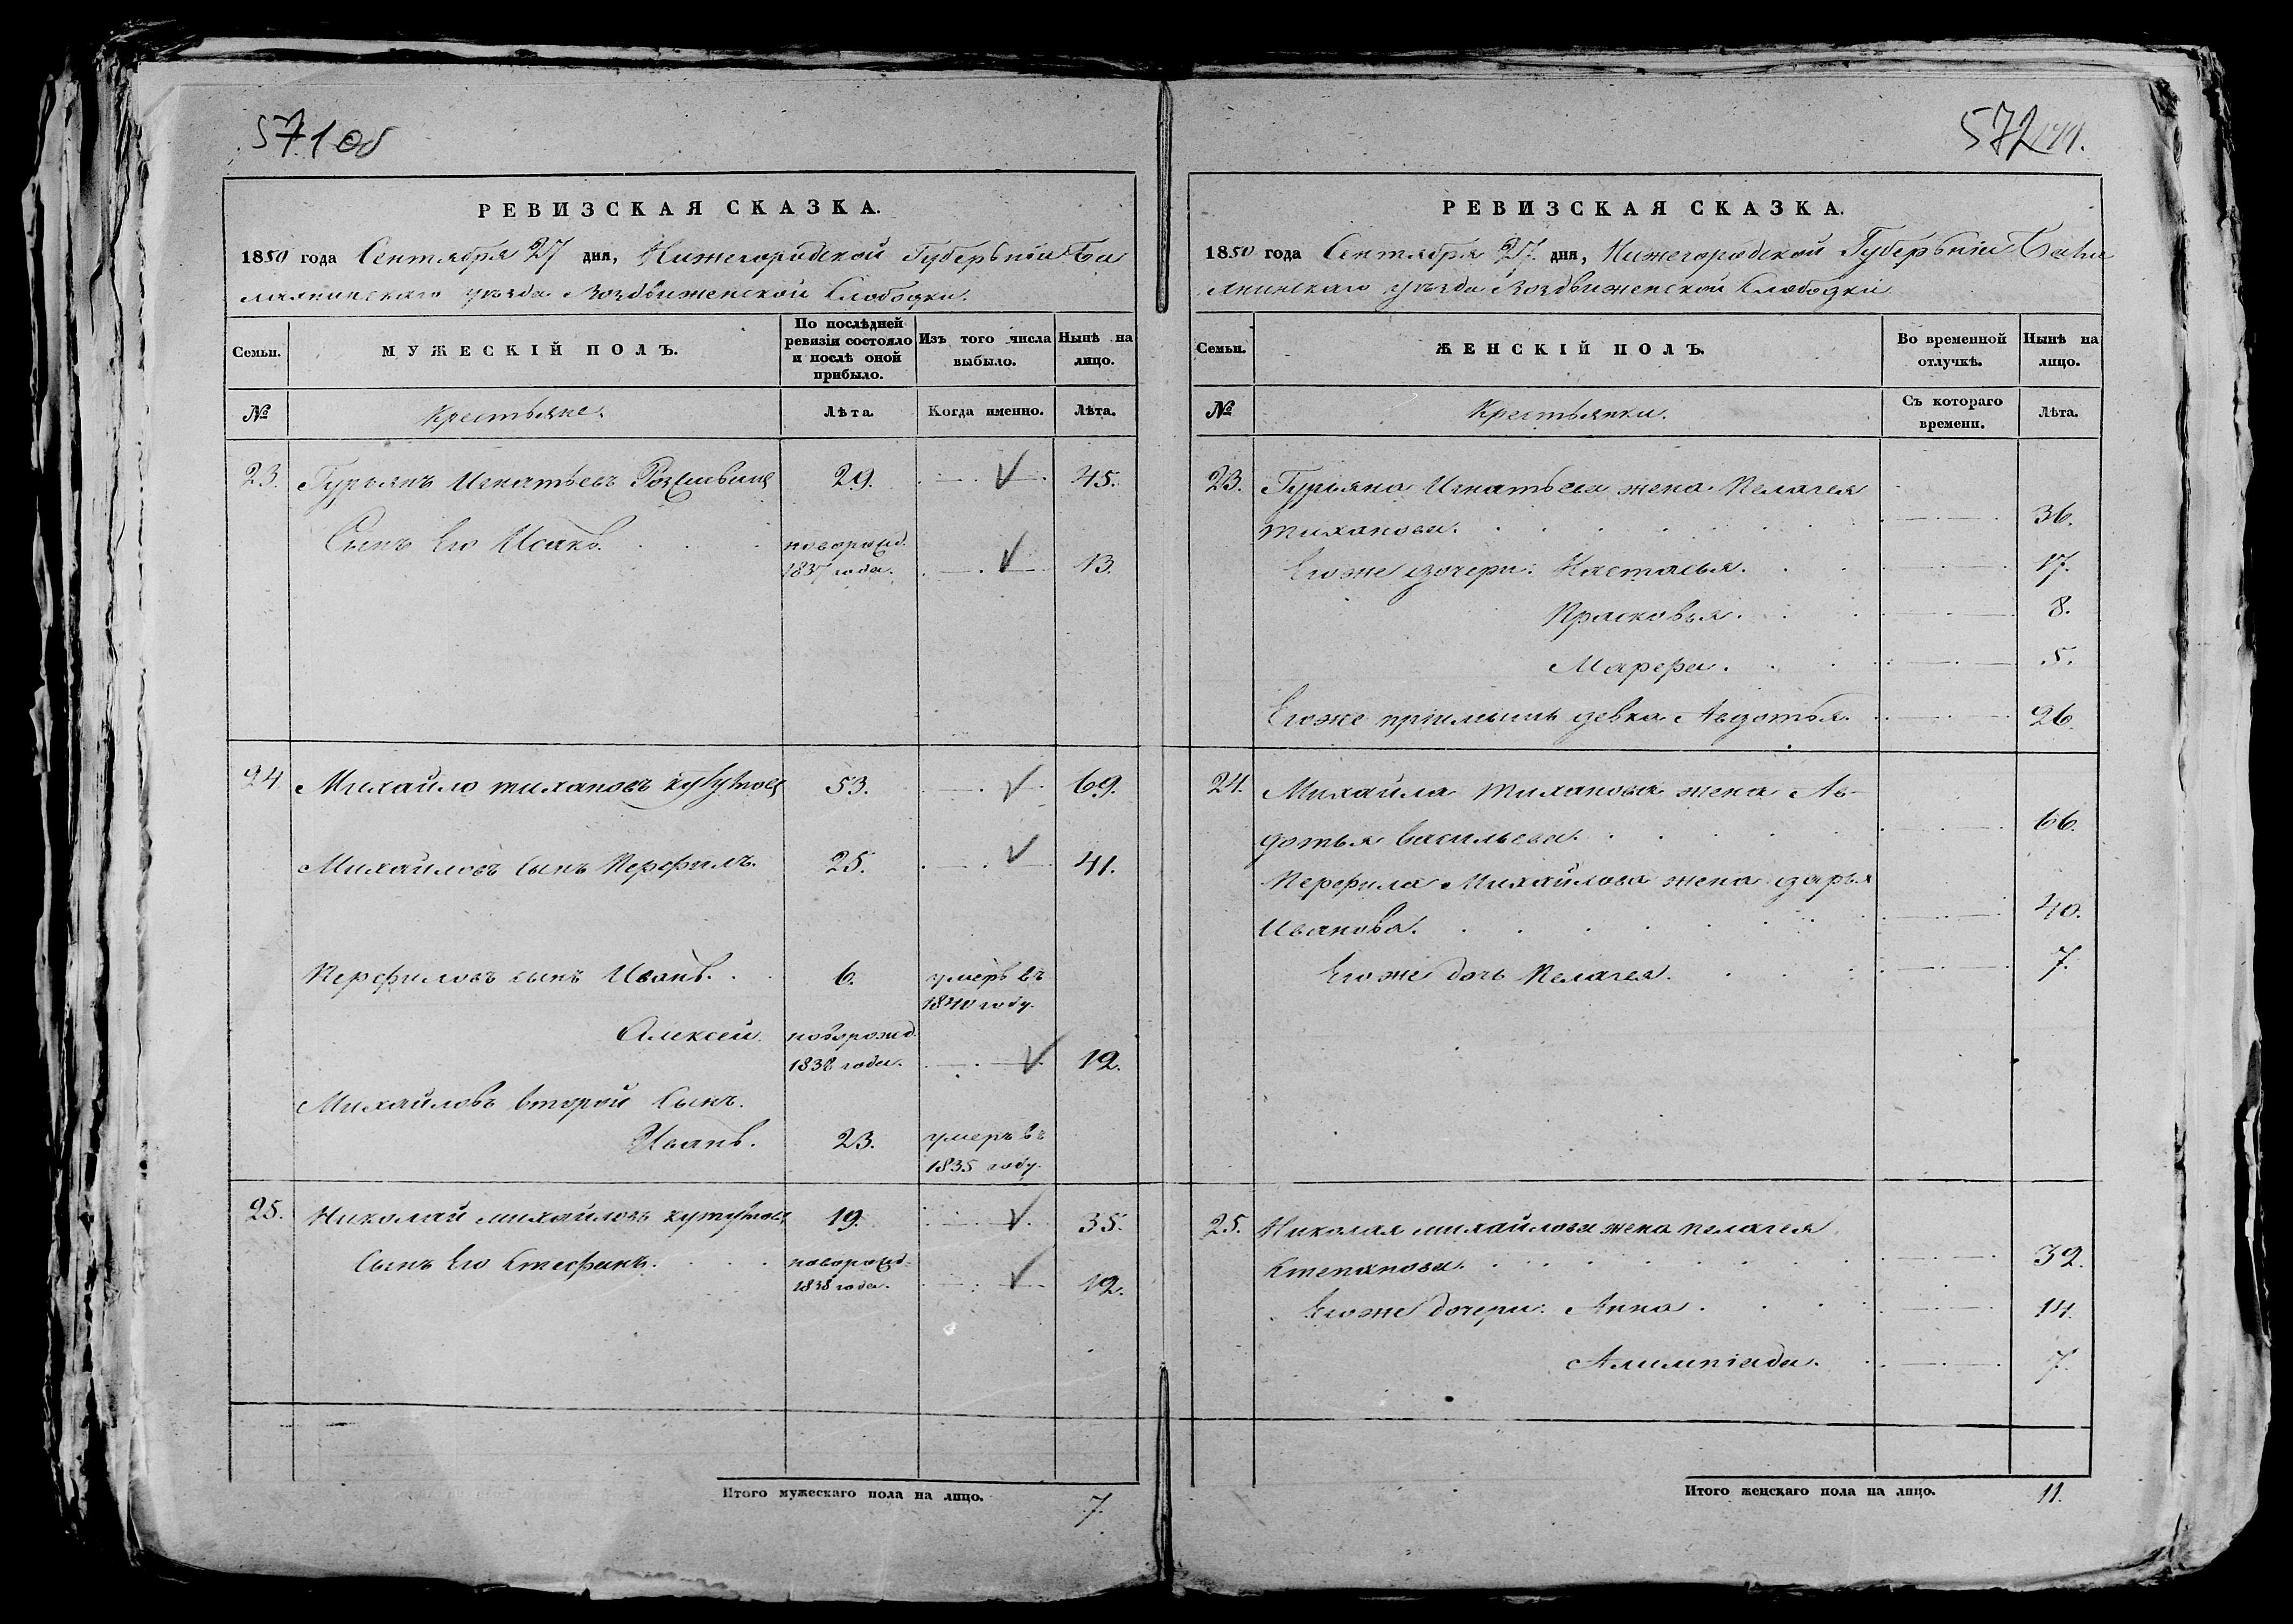 571 об
РЕВИЗСКАЯ СКАЗКА.
1850 года Сентября 27 дня, Нижегородской Губерьніи Ба
лахнинскаго уѣзда Воздвиженской Слободки.
Семьи.
МУЖЕСКІЙ ПОЛЪ.
По послѣдней
ревизіи состояло
и послѣ оной
прибыло.
Изъ того числа
выбыло.
Нынѣ на
лицо.
№
Крестьяне.
Лѣта.
Когда именно.
Лѣта.
23. Гурьянъ Игнатьевъ 29. 45.
Сынъ Его Исакъ. новорожд.
1837 года. 13.
24 Михайло тихановъ 53. 69.
Михайловъ сынъ Перфилъ. 25. 41.
Перфиловъ сынъ Иванъ. 6. умеръ въ
1840 году.
Алексей новорожд.
1838 года. 12.
Михайловъ второй сынъ.
Иванъ. 23. умеръ въ
1835 году.
25. Николай михайловъ кутузовъ 19. 35.
Сынъ Его Стефанъ. новорожд.
1838 года. 12.
Итого мужескаго пола на лицо. 7.
572
РЕВИЗСКАЯ СКАЗКА.
1850 года Сентября 27 дня, Нижегородской Губерьніи Балах
нинскаго уѣзда Воздвиженской Слободки
Семьи.
ЖЕНСКІЙ ПОЛЪ.
Во временной
отлучкѣ.
Нынѣ на
лицо.
№
Крестьянки.
Съ котораго
времени.
Лѣта.
23. Гурьяна Игнатьева жена Пелагея
тиханова. 36.
Егоже дочери: Настасья. 17.
Прасковья. 8.
Марфа. 5.
Егоже пріимышь девка Авдотья. 26
24. Михайла тиханова жена Ав-
дотья васильева. 66.
Перфила Михайлова жена дарья
Иванова. 40.
Егоже дочь Пелагея. 7.
25. Николая михайлова жена пелагея
Степанова. 39.
Егоже дочери: Анна. 14.
Алимпіада. 7.
Итого женскаго пола на лицо. 11.